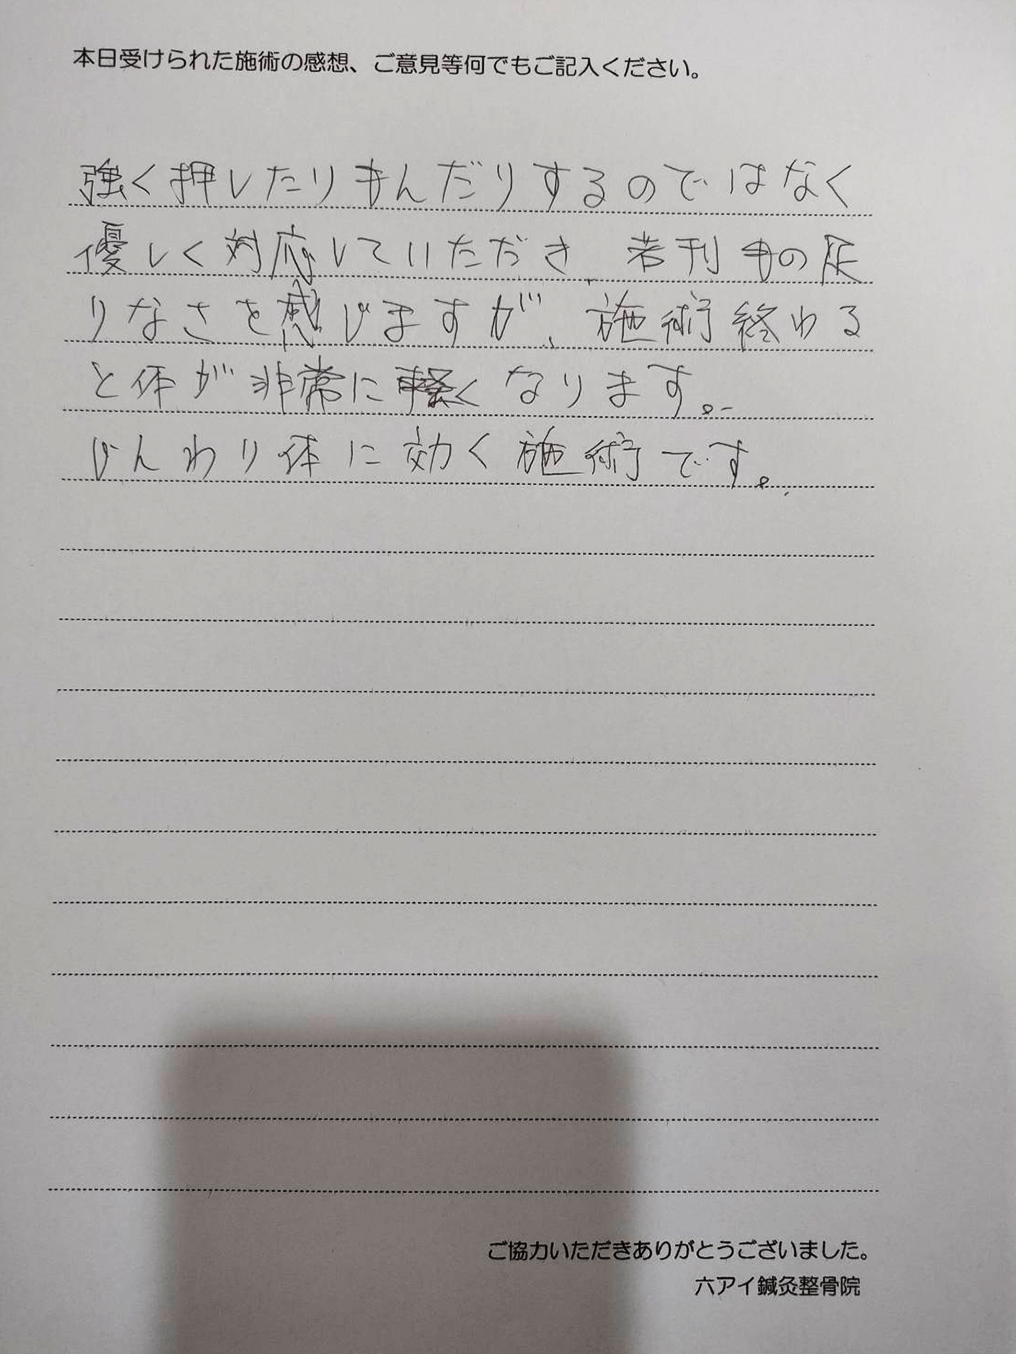 本日受けられた施術の感想、ご意見等何でもご記入ください。
強く押したりもんだりするのではなく
優しく対応していただき、若干物の足
りなさを感じますが、施術終わる
と体が非常に軽くなります。
じんわり体に効く施術です。
ご協力いただきありがとうございました。
六アイ鍼灸整骨院